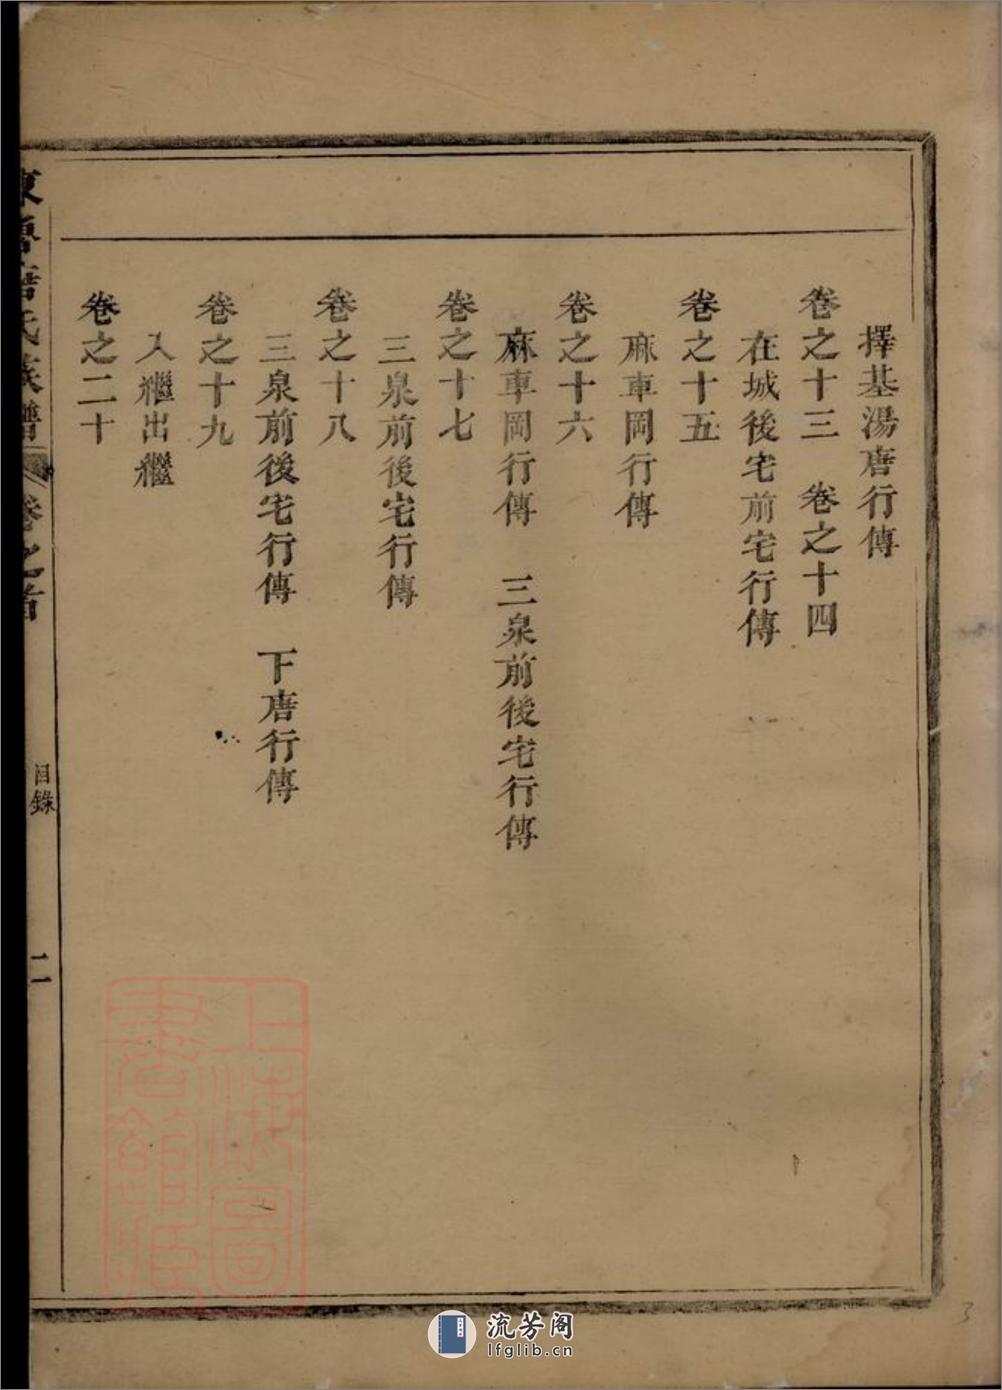 擇基湯唐行傳
卷之十三　卷之十四
在城後宅前宅行傳
卷之十五
麻車岡行傳
卷之十六
麻車岡行傳　三泉前後宅行傳
卷之十七
三泉前後宅行傳
卷之十八
三泉前後宅行傳　下唐行傳
卷之十九
入繼出繼
卷之二十
東魯唐氏族譜　卷之首　目錄　二
上海圖書館藏
3
流芳阁
lfglib.cn